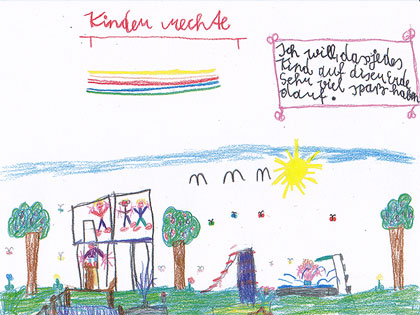 Kinder rechte
Ich will, das jedes
Kind auf diser Erde
Sehr viel spass haben
darf.